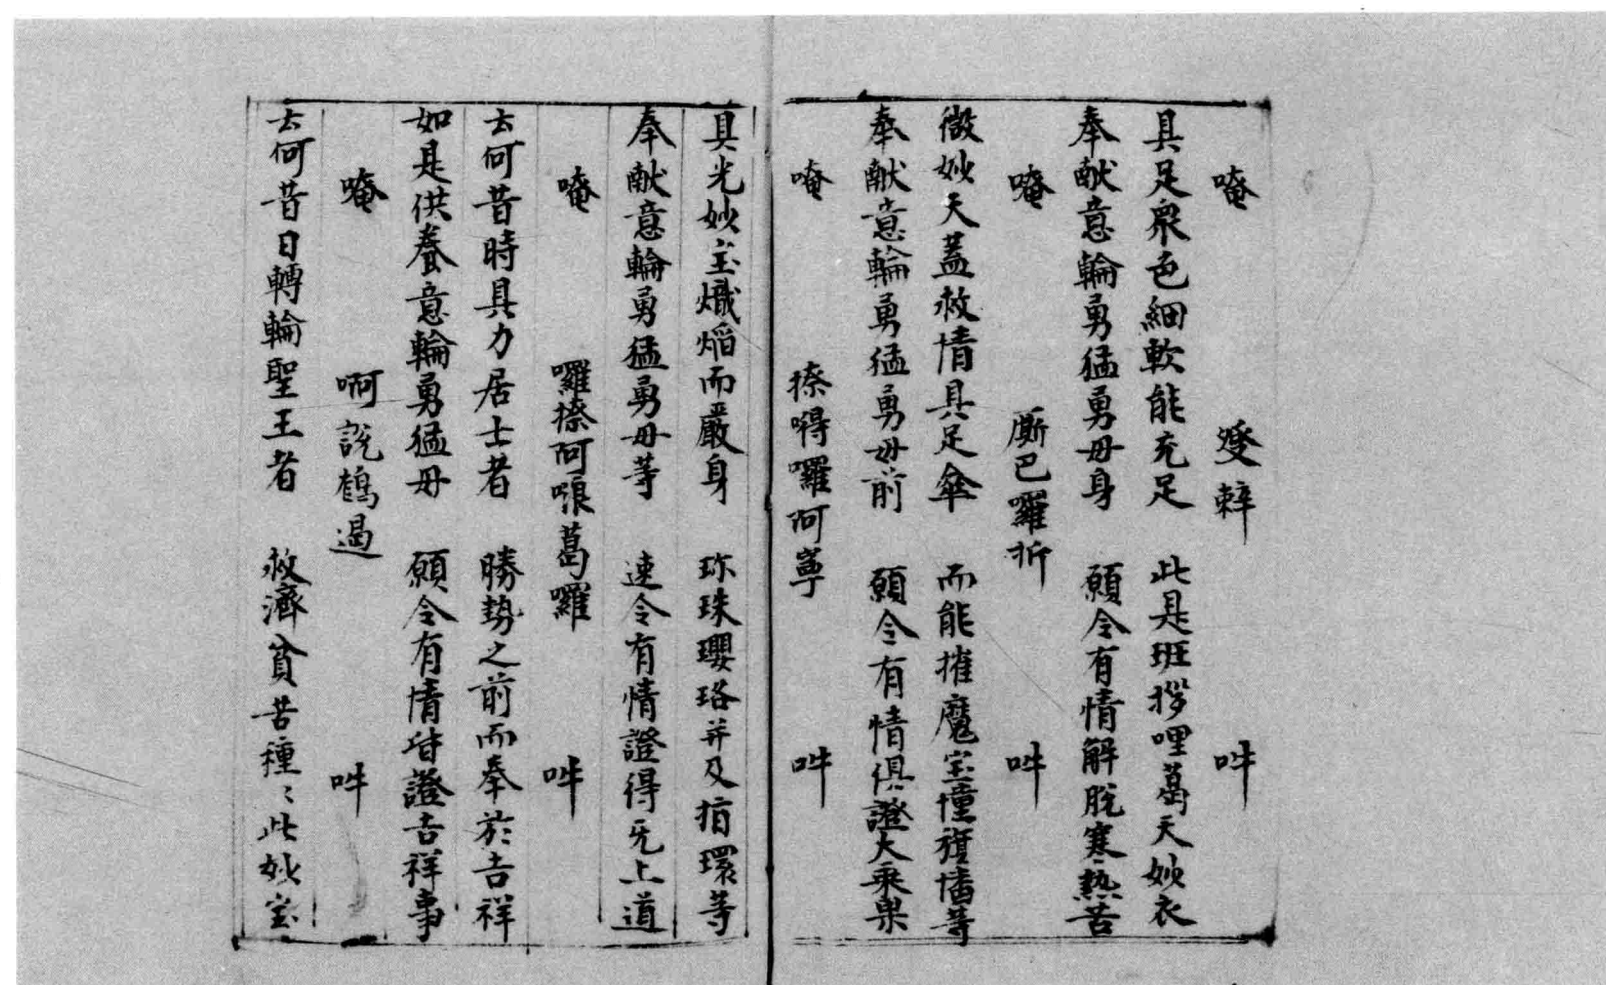 唵 癹辢 吽
具足衆色細軟能充足 此是班拶哩葛天妙衣
奉献意輪勇猛勇母身 願令有情解脫寒熱苦
唵 厮巴囉折 吽
微妙天蓋救情具足傘 而能摧魔宝幢旛等
奉献意輪勇猛勇母前 願令有情俱證大乘果
唵 捺嘚囉阿寧 吽
具光妙宝熾焰而嚴身 珎珠瓔珞并及指環等
奉献意輪勇猛勇母等 速令有情證得旡上道
唵 囉捺阿葛囉 吽
去何昔時具力居士者 勝勢之前而奉於吉祥
如是供養意輪勇猛母 願令有情皆證吉祥事
唵 啊說鶴遏 吽
去何昔日轉輪聖王者 救濟貧苦種〻此妙宝